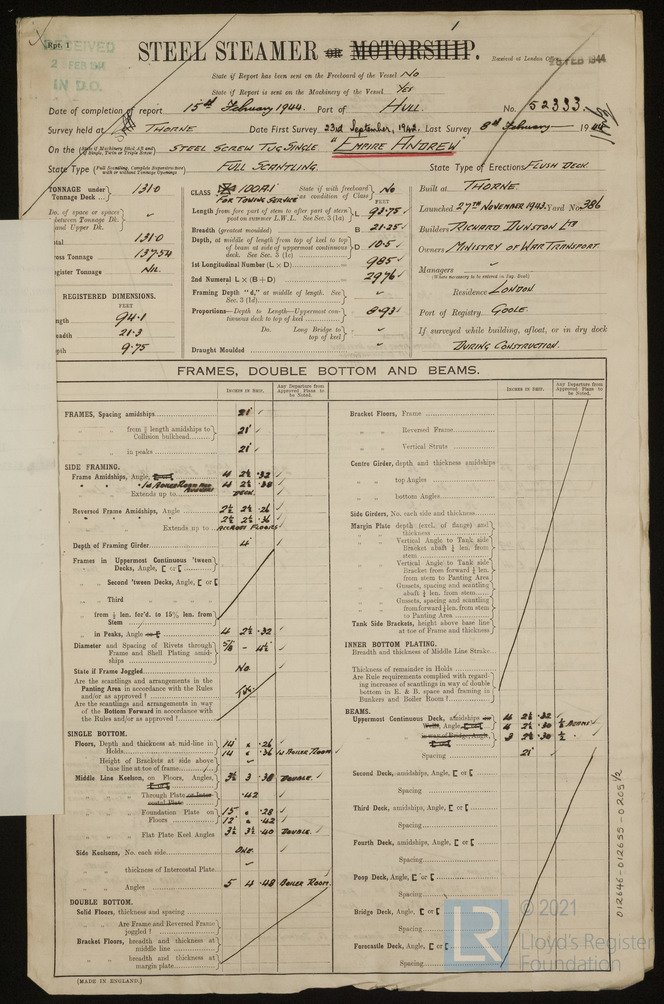 Rpt. 1
RECEIVED
2 FEB 1944
IN D.O.
STEEL STEAMER OR MOTORSHIP.
Received at London Office
FEB 1944
State if Report has been sent on the Freeboard of the Vessel No
State if Report is sent on the Machinery of the Vessel Yes
Date of completion of report 15th February 1944. Port of HULL. No. 52333.
Survey held at THORNE Date First Survey 23rd September, 1942. Last Survey 8th February 1944
On the (State if Machinery fitted Aft and if Single, Twin or Triple Screw) STEEL SCREW TUG. SINGLE. "EMPIRE ANDREW"
State Type (Full Scantling, Complete Superstructure with or without Tonnage Openings) FULL SCANTLING. State Type of Erections FLUSH DECK
TONNAGE under Tonnage Deck ... 131.0
Do. of space or spaces between Tonnage Dk. and Upper Dk.
otal 131.0
ross Tonnage 137.54
egister Tonnage NIL.
REGISTERED DIMENSIONS.
FEET
ngth 94.1
eadth 21.3
pth 9.75
CLASS 100A1 State if with freeboard as condition of Class No
FOR TOWING SERVICE
FEET
Length from fore part of stem to after part of stern post on summer L.W.L. See Sec. 3 (1a) L 93.75
Breadth (greatest moulded) B 21.25
Depth, at middle of length from top of keel to top of beam at side of uppermost continuous deck. See Sec. 3 (1c) D 10.5
1st Longitudinal Number (L × D) = 985
2nd Numeral L × (B + D) = 2976
Framing Depth "d," at middle of length. See Sec. 3 (1d)
Proportions—Depth to Length—Uppermost continuous deck to top of keel 8.93
Do. Long Bridge to top of keel
Draught Moulded
Built at THORNE
Launched 27th NOVEMBER 1943. Yard No. 386
Builders RICHARD DUNSTON LTD
Owners MINISTRY OF WAR TRANSPORT
Managers
(Where necessary to be entered in Reg. Book)
Residence LONDON
Port of Registry GOOLE.
If surveyed while building, afloat, or in dry dock
DURING CONSTRUCTION.
FRAMES, DOUBLE BOTTOM AND BEAMS.
INCHES IN SHIP.
Any Departure from Approved Plans to be Noted.
FRAMES, Spacing amidships 21
" " from ⅗ length amidships to Collision bulkhead 21
" " in peaks 21
SIDE FRAMING.
Frame Amidships, Angle, 4 2½ .32
" " 4 2½ .38
Extends up to DECK.
Reversed Frame Amidships, Angle 2½ 2½ .26
" " 2½ 2½ .36
Extends up to ACCROSS FLOORS
Depth of Framing Girder 4
Frames in Uppermost Continuous 'tween Decks, Angle, [ or [
" Second 'tween Decks, Angle, [ or [
" Third " "
" from ⅗ len. for'd. to 15% len. from Stem
" in Peaks, Angle or [ 4 2½ .32
Diameter and Spacing of Rivets through Frame and Shell Plating amidships 5/8 - 4½
State if Frame Joggled No.
Are the scantlings and arrangements in the Panting Area in accordance with the Rules and/or as approved ?
Are the scantlings and arrangements in way of the Bottom Forward in accordance with the Rules and/or as approved ? Yes.
SINGLE BOTTOM.
Floors, Depth and thickness at mid-line in Holds 14 × .26
14 × .36 IN BOILER ROOM
Height of Brackets at side above base line at toe of frame
Middle Line Keelson, on Floors, Angles, 3½ 3 .38 DOUBLE.
" " Through Plate or Intercostal Plate .42
" " Foundation Plate on Floors 15 × .28
12 × .42
" " Flat Plate Keel Angles 3½ 3½ .40 DOUBLE.
Side Keelsons, No. each side ONE.
" " thickness of Intercostal Plate
" " Angles 5 4 .48 BOILER ROOM.
DOUBLE BOTTOM.
Solid Floors, thickness and spacing
" " Are Frame and Reversed Frame joggled ?
Bracket Floors, breadth and thickness at middle line
" " breadth and thickness at margin plate
INCHES IN SHIP.
Any Departure from Approved Plans to be Noted.
Bracket Floors, Frame
" " Reversed Frame
" " Vertical Struts
Centre Girder, depth and thickness amidships
" " top Angles
" " bottom Angles
Side Girders, No. each side and thickness
Margin Plate depth (excl. of flange) and thickness
" " Vertical Angle to Tank side Bracket abaft ¼ len. from stem
" " Vertical Angle to Tank side Bracket from forward ¼ len. from stem to Panting Area
" " Gussets, spacing and scantling abaft ¼ len. from stem
" " Gussets, spacing and scantling from forward ¼ len. from stem to Panting Area
Tank Side Brackets, height above base line at toe of Frame and thickness
INNER BOTTOM PLATING.
Breadth and thickness of Middle Line Strake
Thickness of remainder in Holds
Are Rule requirements complied with regarding increases of scantlings in way of double bottom in E. & B. space and framing in Bunkers and Boiler Room ?
BEAMS.
Uppermost Continuous Deck, amidships 4 2½ .32
4 2½ .30 ½ BEAMS
3 2½ .30 ½
Spacing 21
Second Deck, amidships, Angle, [ or [
Spacing
Third Deck, amidships, Angle, [ or [
Spacing
Fourth Deck, amidships, Angle, [ or [
Spacing
Poop Deck, Angle, [ or [
Spacing
Bridge Deck, Angle, [ or [
Spacing
Forecastle Deck, Angle, [ or [
Spacing
(MADE IN ENGLAND.)
012646-012655-0205 1/2
LR
© 2021
Lloyd's Register
Foundation